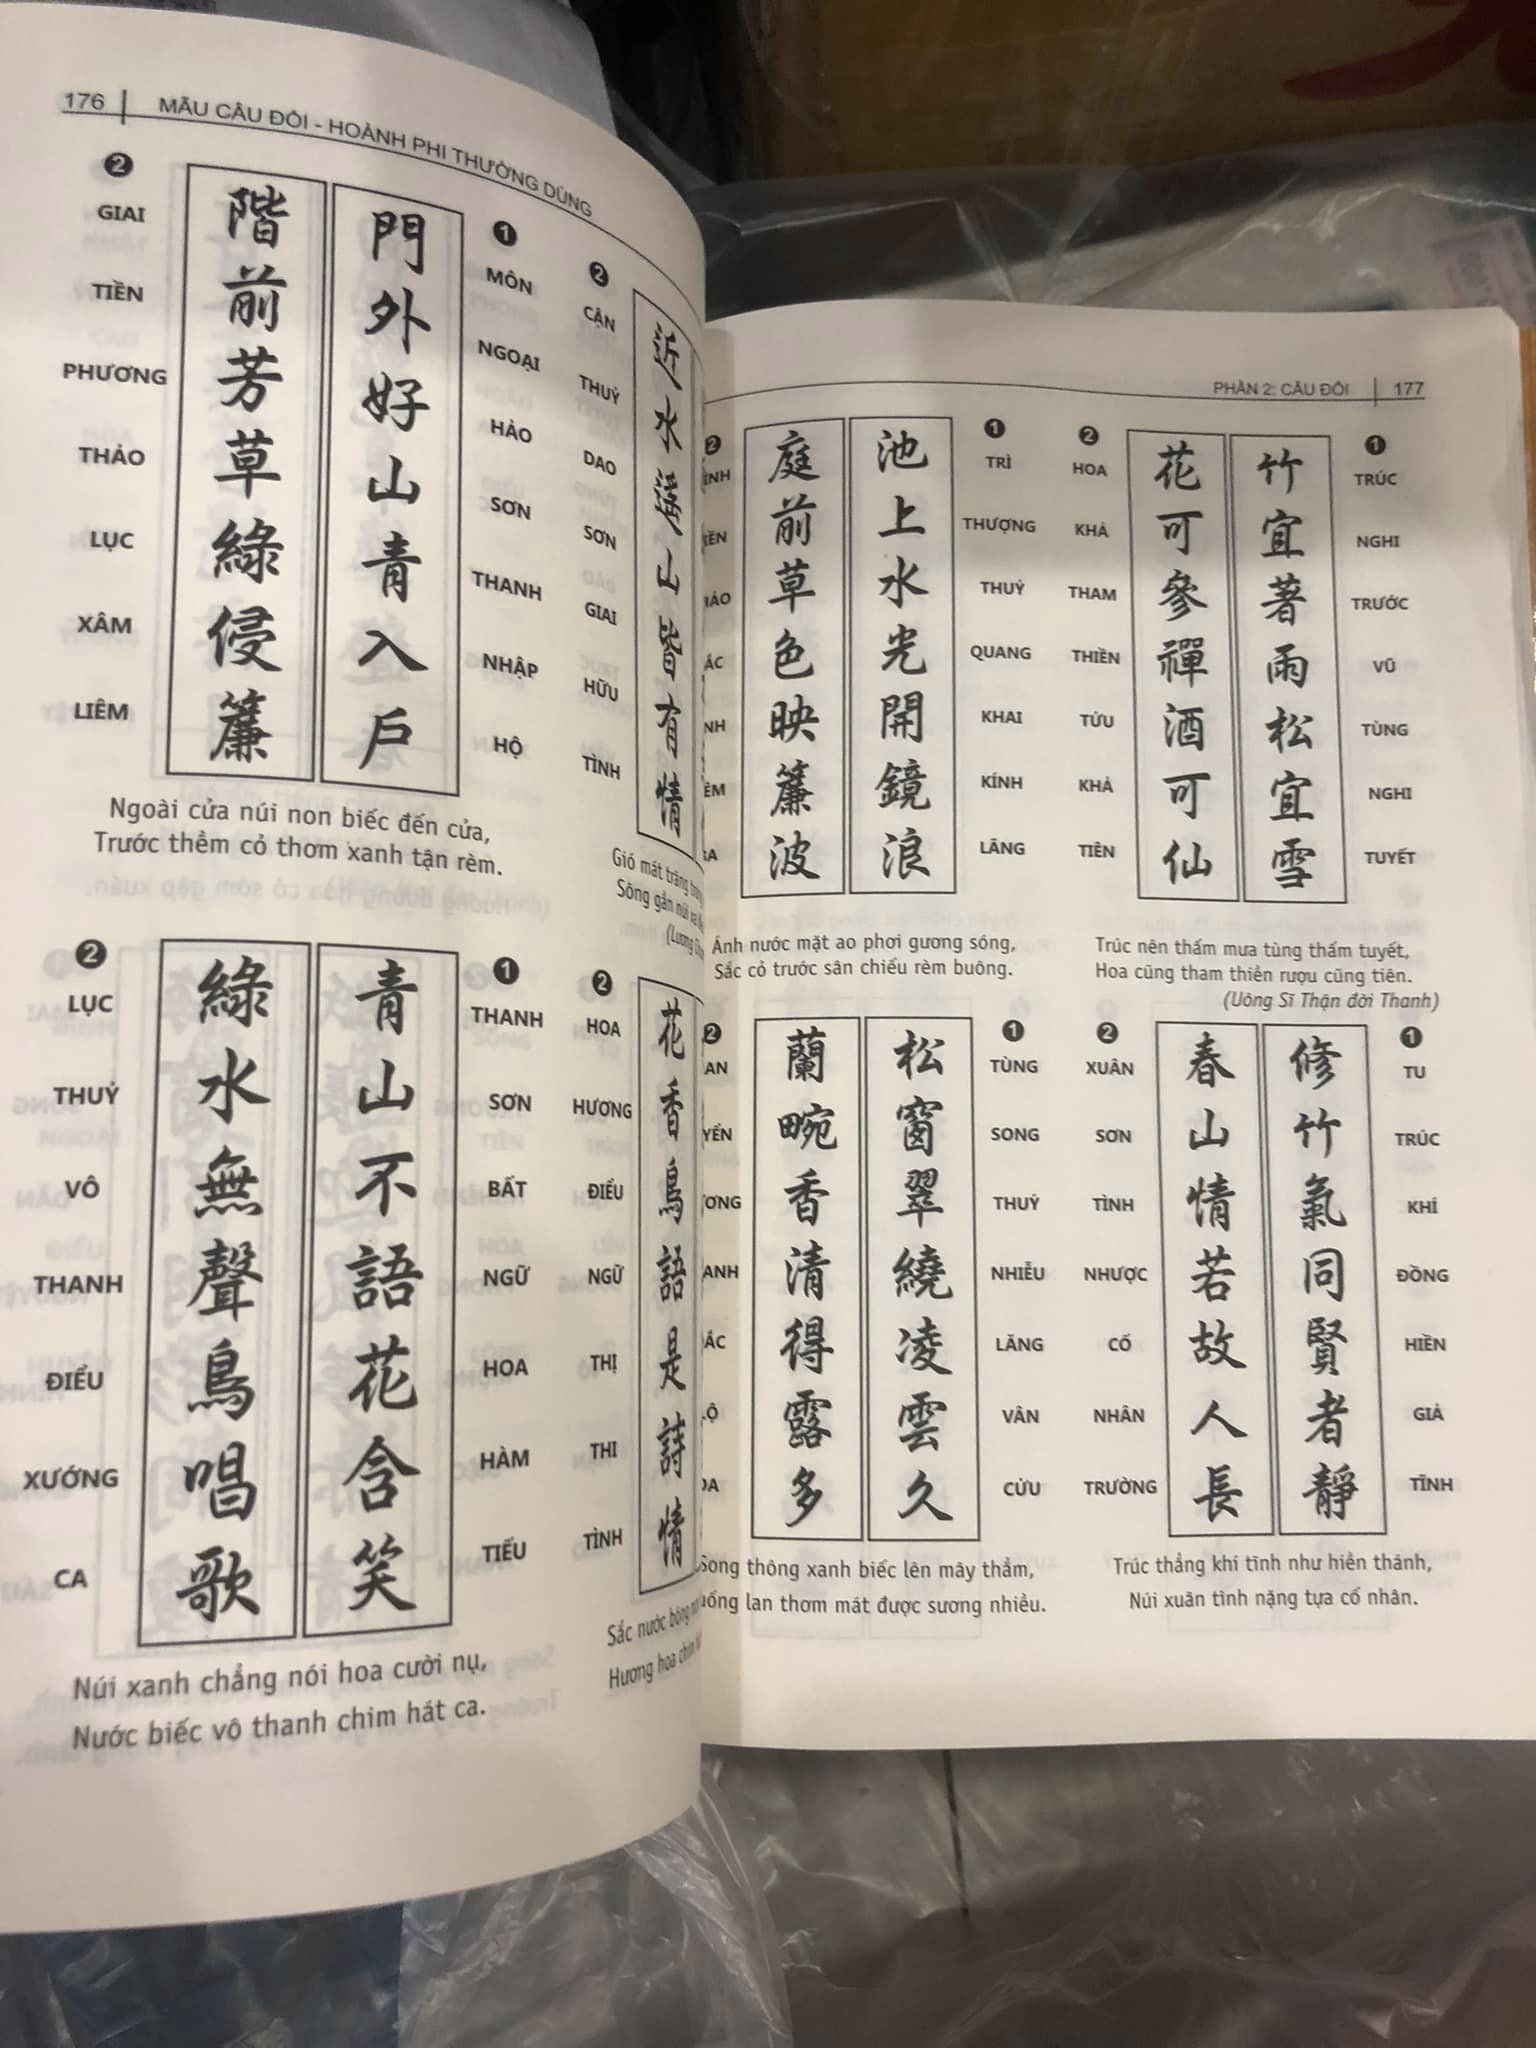 176 | MẪU CÂU ĐỐI - HOÀNH PHI THƯỜNG DÙNG
❶
門外好山青入戶
MÔN NGOẠI HẢO SƠN THANH NHẬP HỘ
❷
階前芳草綠侵簾
GIAI TIỀN PHƯƠNG THẢO LỤC XÂM LIÊM
Ngoài cửa núi non biếc đến cửa,
Trước thềm cỏ thơm xanh tận rèm.
❷
近水遙山皆有情
CẬN THUỶ DAO SƠN GIAI HỮU TÌNH
Gió mát trăng
Sông gần núi xa
❶
青山不語花含笑
THANH SƠN BẤT NGỮ HOA HÀM TIẾU
❷
綠水無聲鳥唱歌
LỤC THUỶ VÔ THANH ĐIỂU XƯỚNG CA
Núi xanh chẳng nói hoa cười nụ,
Nước biếc vô thanh chim hát ca.
❷
花香鳥語是詩情
HOA HƯƠNG ĐIỂU NGỮ THỊ THI TÌNH
Sắc nước bóng
Hương hoa chim
PHẦN 2: CÂU ĐỐI | 177
❶
池上水光開鏡浪
TRÌ THƯỢNG THUỶ QUANG KHAI KÍNH LÃNG
❷
庭前草色映簾波
Ánh nước mặt ao phơi gương sóng,
Sắc cỏ trước sân chiếu rèm buông.
❶
竹宜著雨松宜雪
TRÚC NGHI TRƯỚC VŨ TÙNG NGHI TUYẾT
❷
花可參禪酒可仙
HOA KHẢ THAM THIỀN TỬU KHẢ TIÊN
Trúc nên thấm mưa tùng thấm tuyết,
Hoa cũng tham thiền rượu cũng tiên.
(Uông Sĩ Thận đời Thanh)
❶
松窗翠繞凌雲久
TÙNG SONG THUÝ NHIỄU LĂNG VÂN CỬU
❷
蘭畹香清得露多
Song thông xanh biếc lên mây thẳm,
lan thơm mát được sương nhiều.
❶
修竹氣同賢者靜
TU TRÚC KHÍ ĐỒNG HIỀN GIẢ TĨNH
❷
春山情若故人長
XUÂN SƠN TÌNH NHƯỢC CỐ NHÂN TRƯỜNG
Trúc thẳng khí tĩnh như hiền thánh,
Núi xuân tình nặng tựa cố nhân.